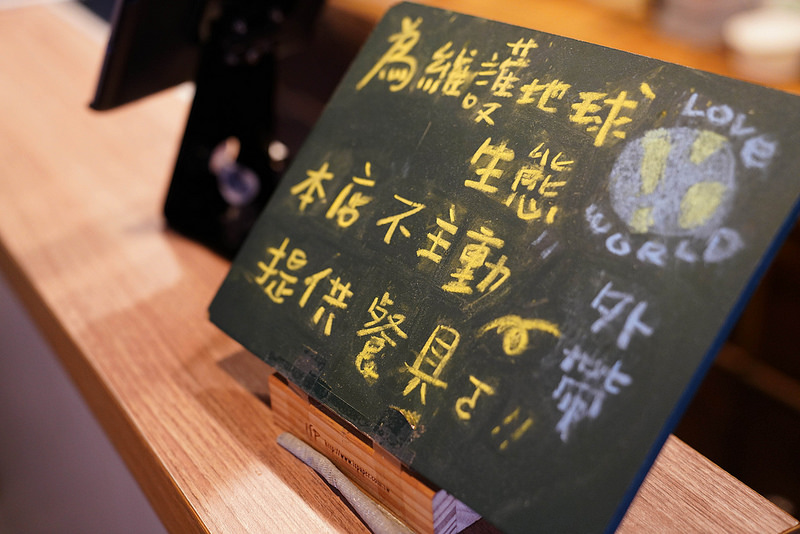 為維護地球
生態
本店不主動
提供餐具了!!
LOVE
WORLD
外帶